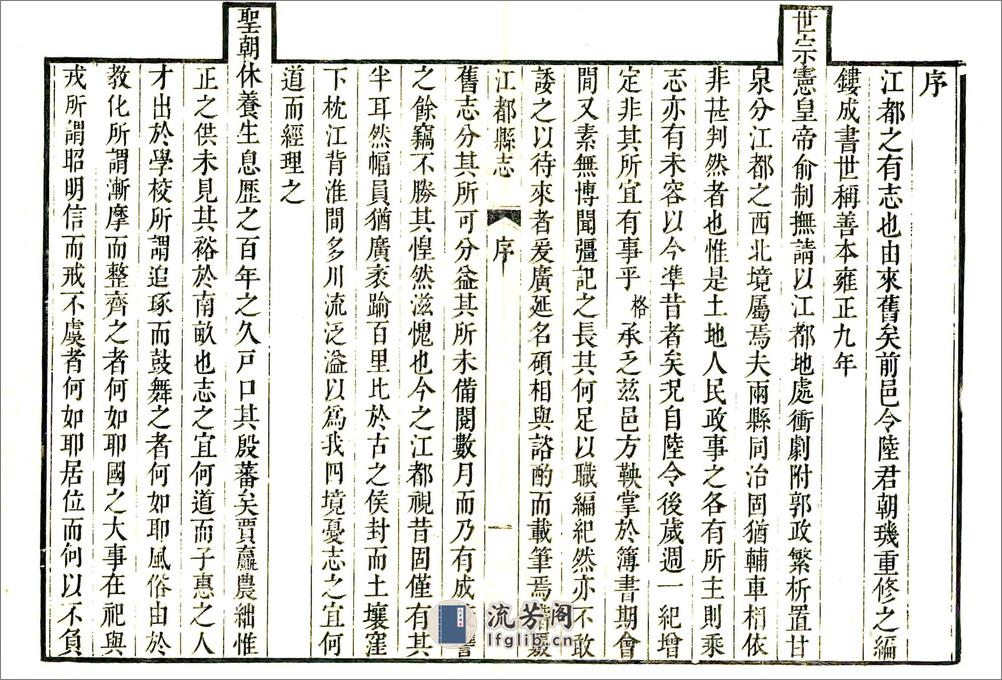 序
江都之有志也由來舊矣前邑令陸君朝璣重修之編
鏤成書世稱善本雍正九年
世宗憲皇帝俞制撫請以江都地處衝劇附郭政繁析置甘
泉分江都之西北境屬焉夫兩縣同治固猶輔車相依
非甚判然者也惟是土地人民政事之各有所主則乘
志亦有未容以今準昔者矣況自陸令後歲週一紀增
定非其所宜有事乎格承乏茲邑方鞅掌於簿書期會
間又素無博聞彊記之長其何足以職編紀然亦不敢
諉之以待來者爰廣延名碩相與諮酌而載筆焉
江都縣志 序 一
舊志分其所可分益其所未備閱數月而乃有成
之餘竊不勝其惶然滋愧也今之江都視昔固僅有其
半耳然幅員猶廣袤踰百里比於古之侯封而土壤窪
下枕江背淮間多川流泛溢以爲我四境憂志之宜何
道而經理之
聖朝休養生息歷之百年之久戸口其殷蕃矣賈贏農絀惟
正之供未見其裕於南畝也志之宜何道而子惠之人
才出於學校所謂追琢而鼓舞之者何如耶風俗由於
教化所謂漸摩而整齊之者何如耶國之大事在祀與
戎所謂昭明信而戒不虞者何如耶居位而何以不負
流芳阁
lfglib.cn